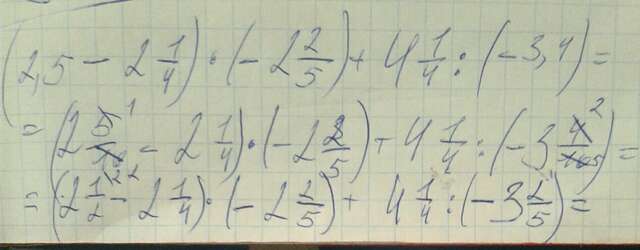 (2,5 - 2 1/4) · (-2 2/5) + 4 1/4 : (-3,4) =
= (2 5̶ ¹/1̶0̶ ₂ - 2 1/4) · (-2 2/5) + 4 1/4 : (-3 4̶ ²/1̶0̶ ₅) =
= (2 1/2 - 2 1/4) · (-2 2/5) + 4 1/4 : (-3 2/5) =